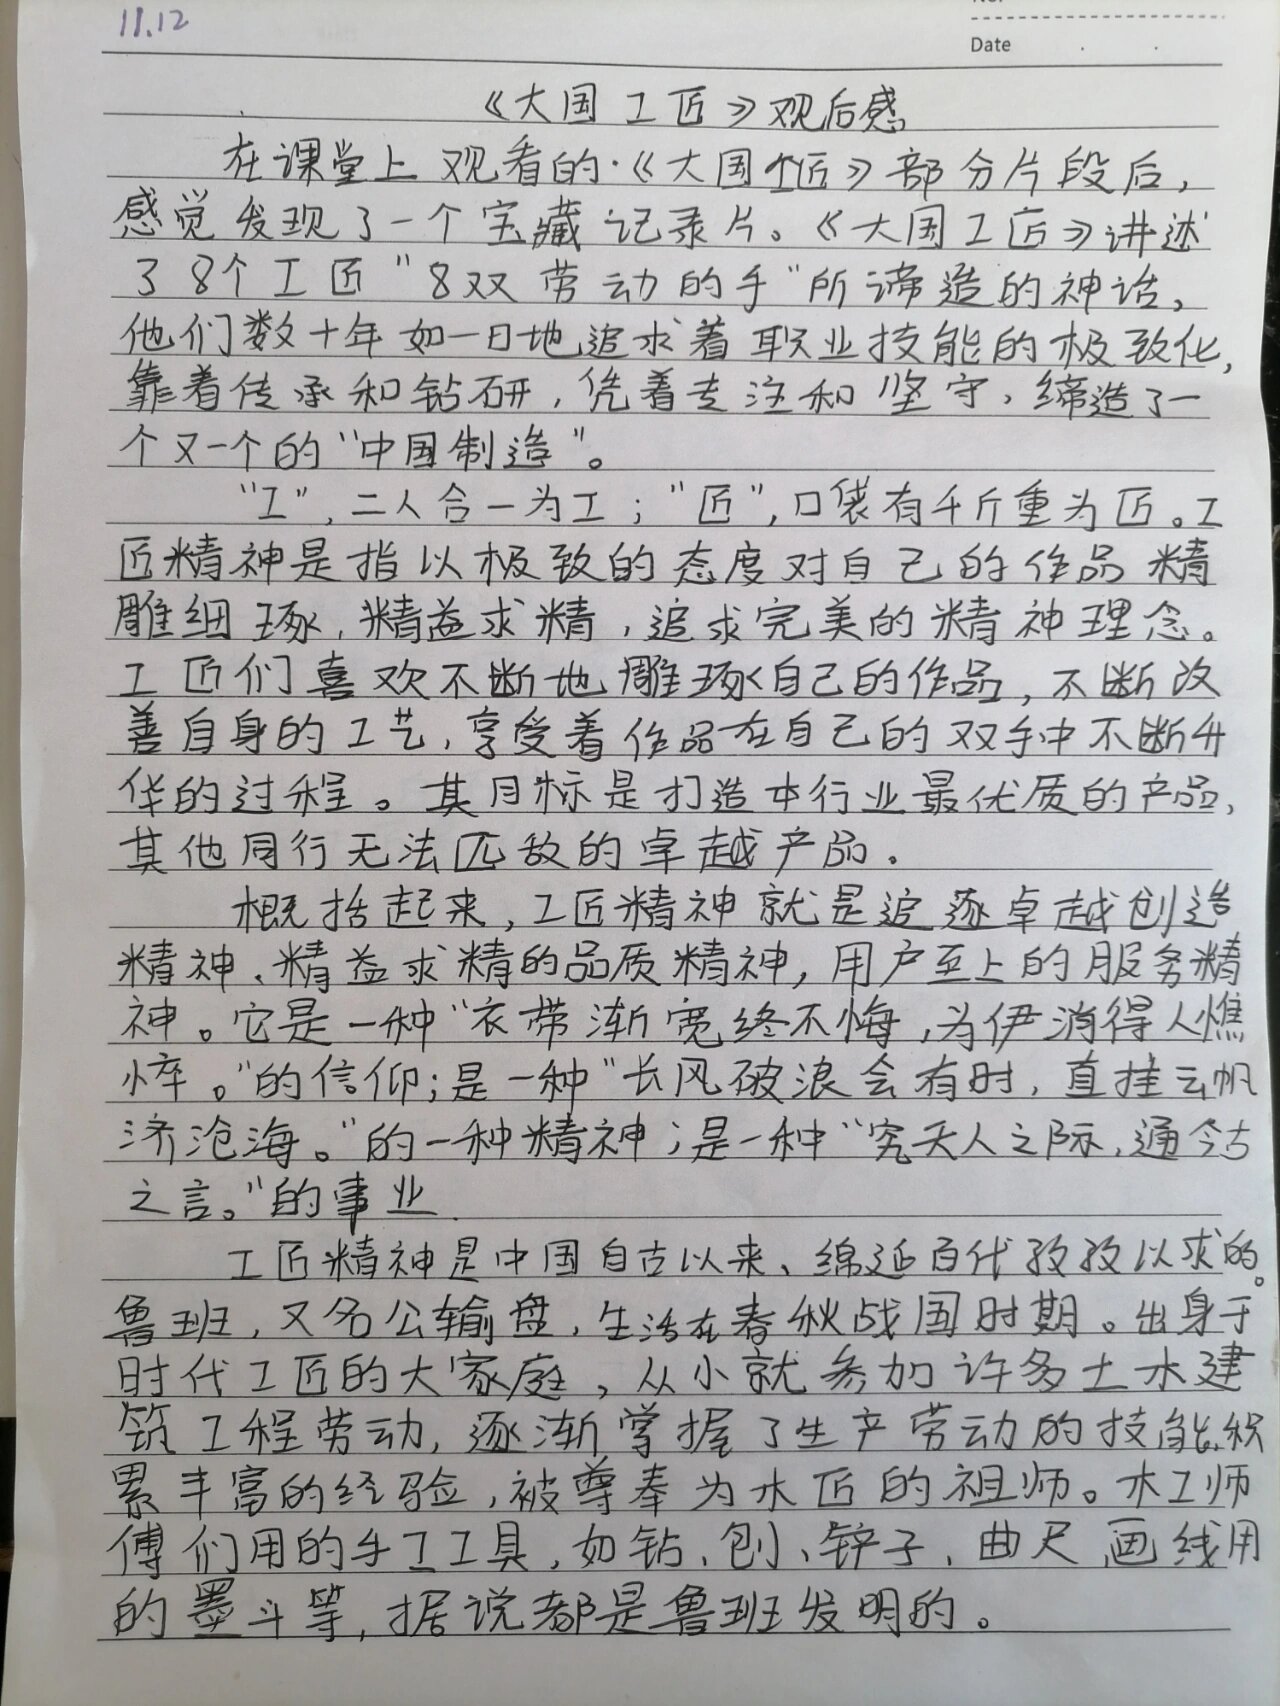 11.12
No:
Date
《大国工匠》观后感
在课堂上观看的《大国工匠》部分片段后，
感觉发现了一个宝藏记录片。《大国工匠》讲述
了8个工匠“8双劳动的手”所谛造的神话，
他们数十年如一日地追求着职业技能的极致化，
靠着传承和钻研，凭着专注和坚守，缔造了一
个又一个的“中国制造”。
“工”，二人合一为工；“匠”，口袋有千斤重为匠。工
匠精神是指以极致的态度对自己的作品精
雕细琢，精益求精，追求完美的精神理念。
工匠们喜欢不断地雕琢自己的作品，不断改
善自身的工艺，享受着作品在自己的双手中不断升
华的过程。其目标是打造本行业最优质的产品，
其他同行无法匹敌的卓越产品。
概括起来，工匠精神就是追逐卓越创造
精神、精益求精的品质精神，用户至上的服务精
神。它是一种“衣带渐宽终不悔，为伊消得人憔
悴。”的信仰；是一种“长风破浪会有时，直挂云帆
济沧海。”的一种精神；是一种“究天人之际，通今古
之言。”的事业.
工匠精神是中国自古以来、绵延百代孜孜以求的。
鲁班，又名公输盘，生活在春秋战国时期。出身于
时代工匠的大家庭，从小就参加许多土木建
筑工程劳动，逐渐掌握了生产劳动的技能，积
累丰富的经验，被尊奉为木匠的祖师。木工师
傅们用的手工工具，如钻、刨、锌子、曲尺，画线用
的墨斗等，据说都是鲁班发明的。